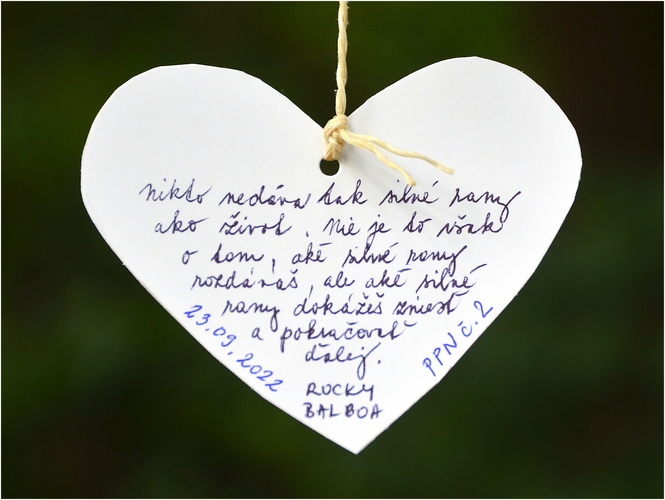 Nikto nedáva tak silné rany
ako život. Nie je to však
o tom, aké silné rany
rozdávaš, ale aké silné
rany dokážeš zniesť
a pokračovať
ďalej.
23.09.2022
PPN č. 2
ROCKY
BALBOA